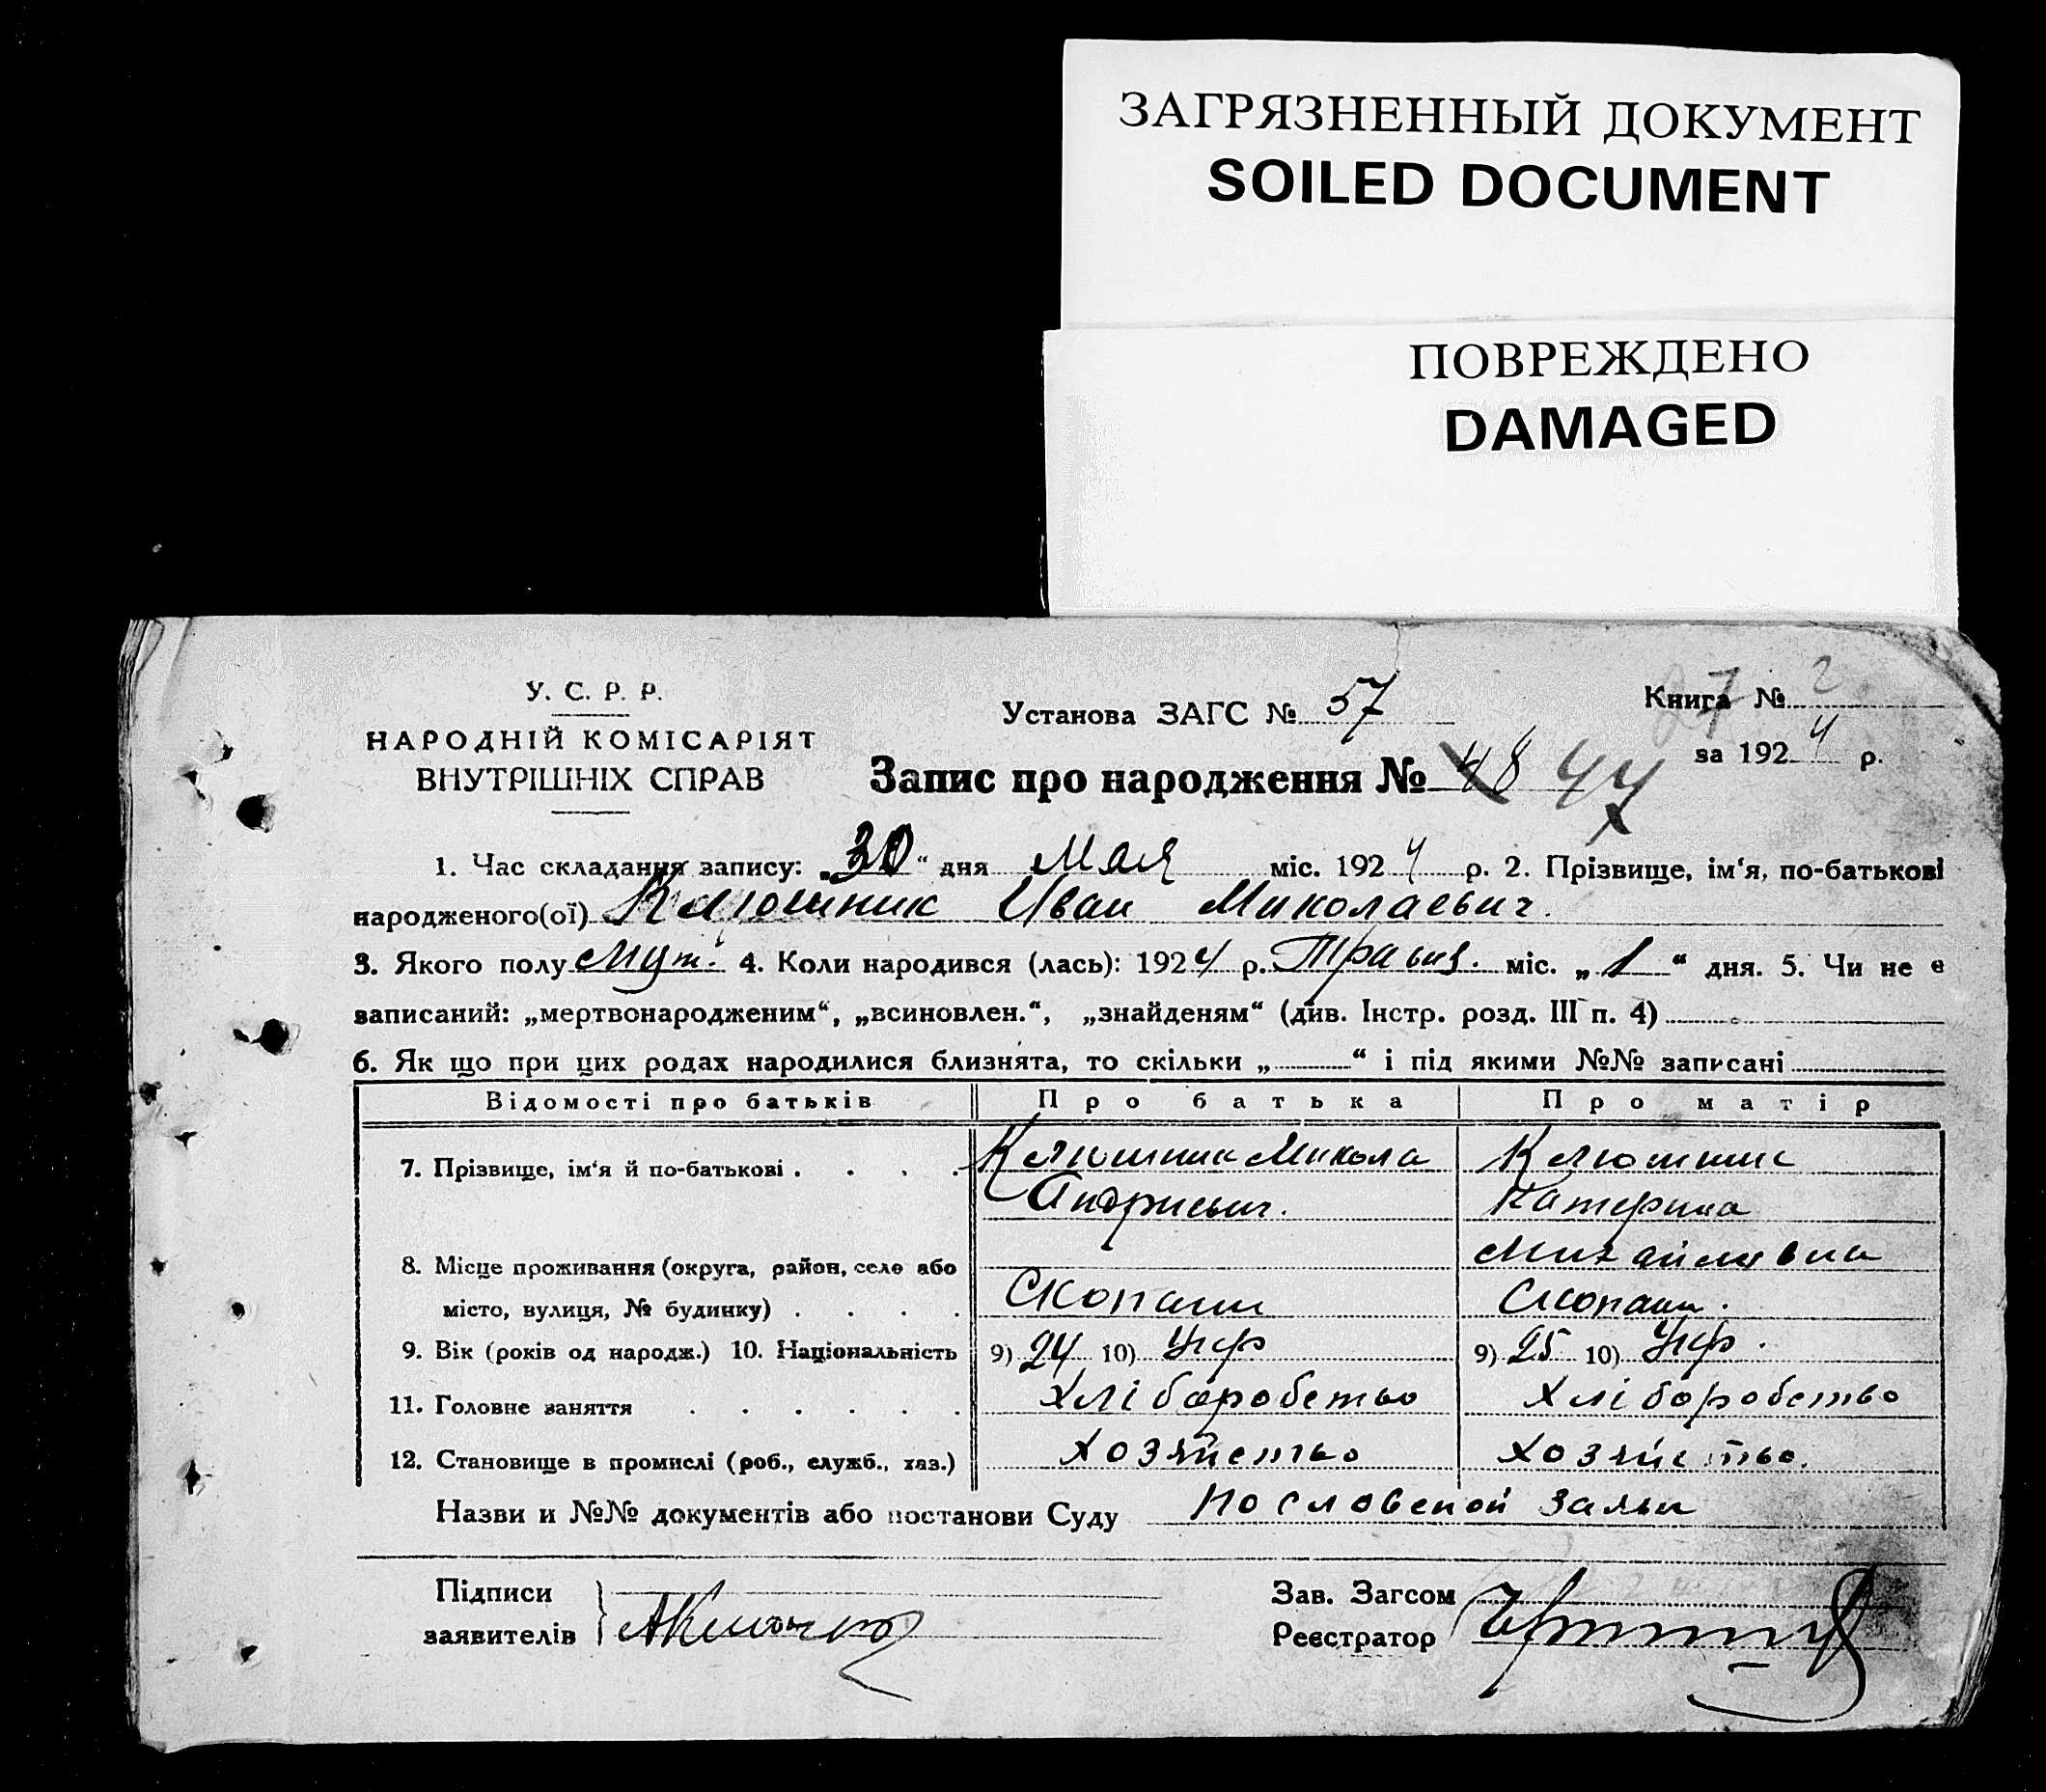 ЗАГРЯЗНЕННЫЙ ДОКУМЕНТ
SOILED DOCUMENT
ПОВРЕЖДЕНО
DAMAGED
У. С. Р. Р.
НАРОДНІЙ КОМІСАРІЯТ
ВНУТРІШНІХ СПРАВ
Установа ЗАГС № 57
Книга № 2
за 1924 р.
Запис про народження № 48 47
1. Час складання запису: „30“ дня Мая міс. 1924 р. 2. Прізвище, ім‘я, по-батькові
народженого(ої) Клюшник Иван Миколаевич.
3. Якого полу Муж. 4. Коли народився (лась): 1924 р. Травня. міс. „1“ дня. 5. Чи не є
записаний: „мертвонародженим“, „всиновлен.“, „знайденям“ (див. Інстр. розд. III п. 4)
6. Як що при цих родах народилися близнята, то скільки „ “ і під якими №№ записані
Відомості про батьків Про батька Про матір
7. Прізвище, ім‘я й по-батькові . . . . Клюшник Микола Клюшник
Андриевич. Катерина
Михайливна
8. Місце проживання (округа, район, село або
місто, вулиця, № будинку) . . . . Скопани Скопани.
9. Вік (років од народж.) 10. Національність 9) 24 10) Укр 9) 25 10) Укр.
11. Головне заняття . . . . . . Хліборобство Хліборобство
12. Становище в промислі (роб., служб., хаз.) Хозяйство Хозяйство.
Назви и №№ документів або постанови Суду По словесной заяви
Підписи
заявителів
Зав. Загсом
Реєстратор